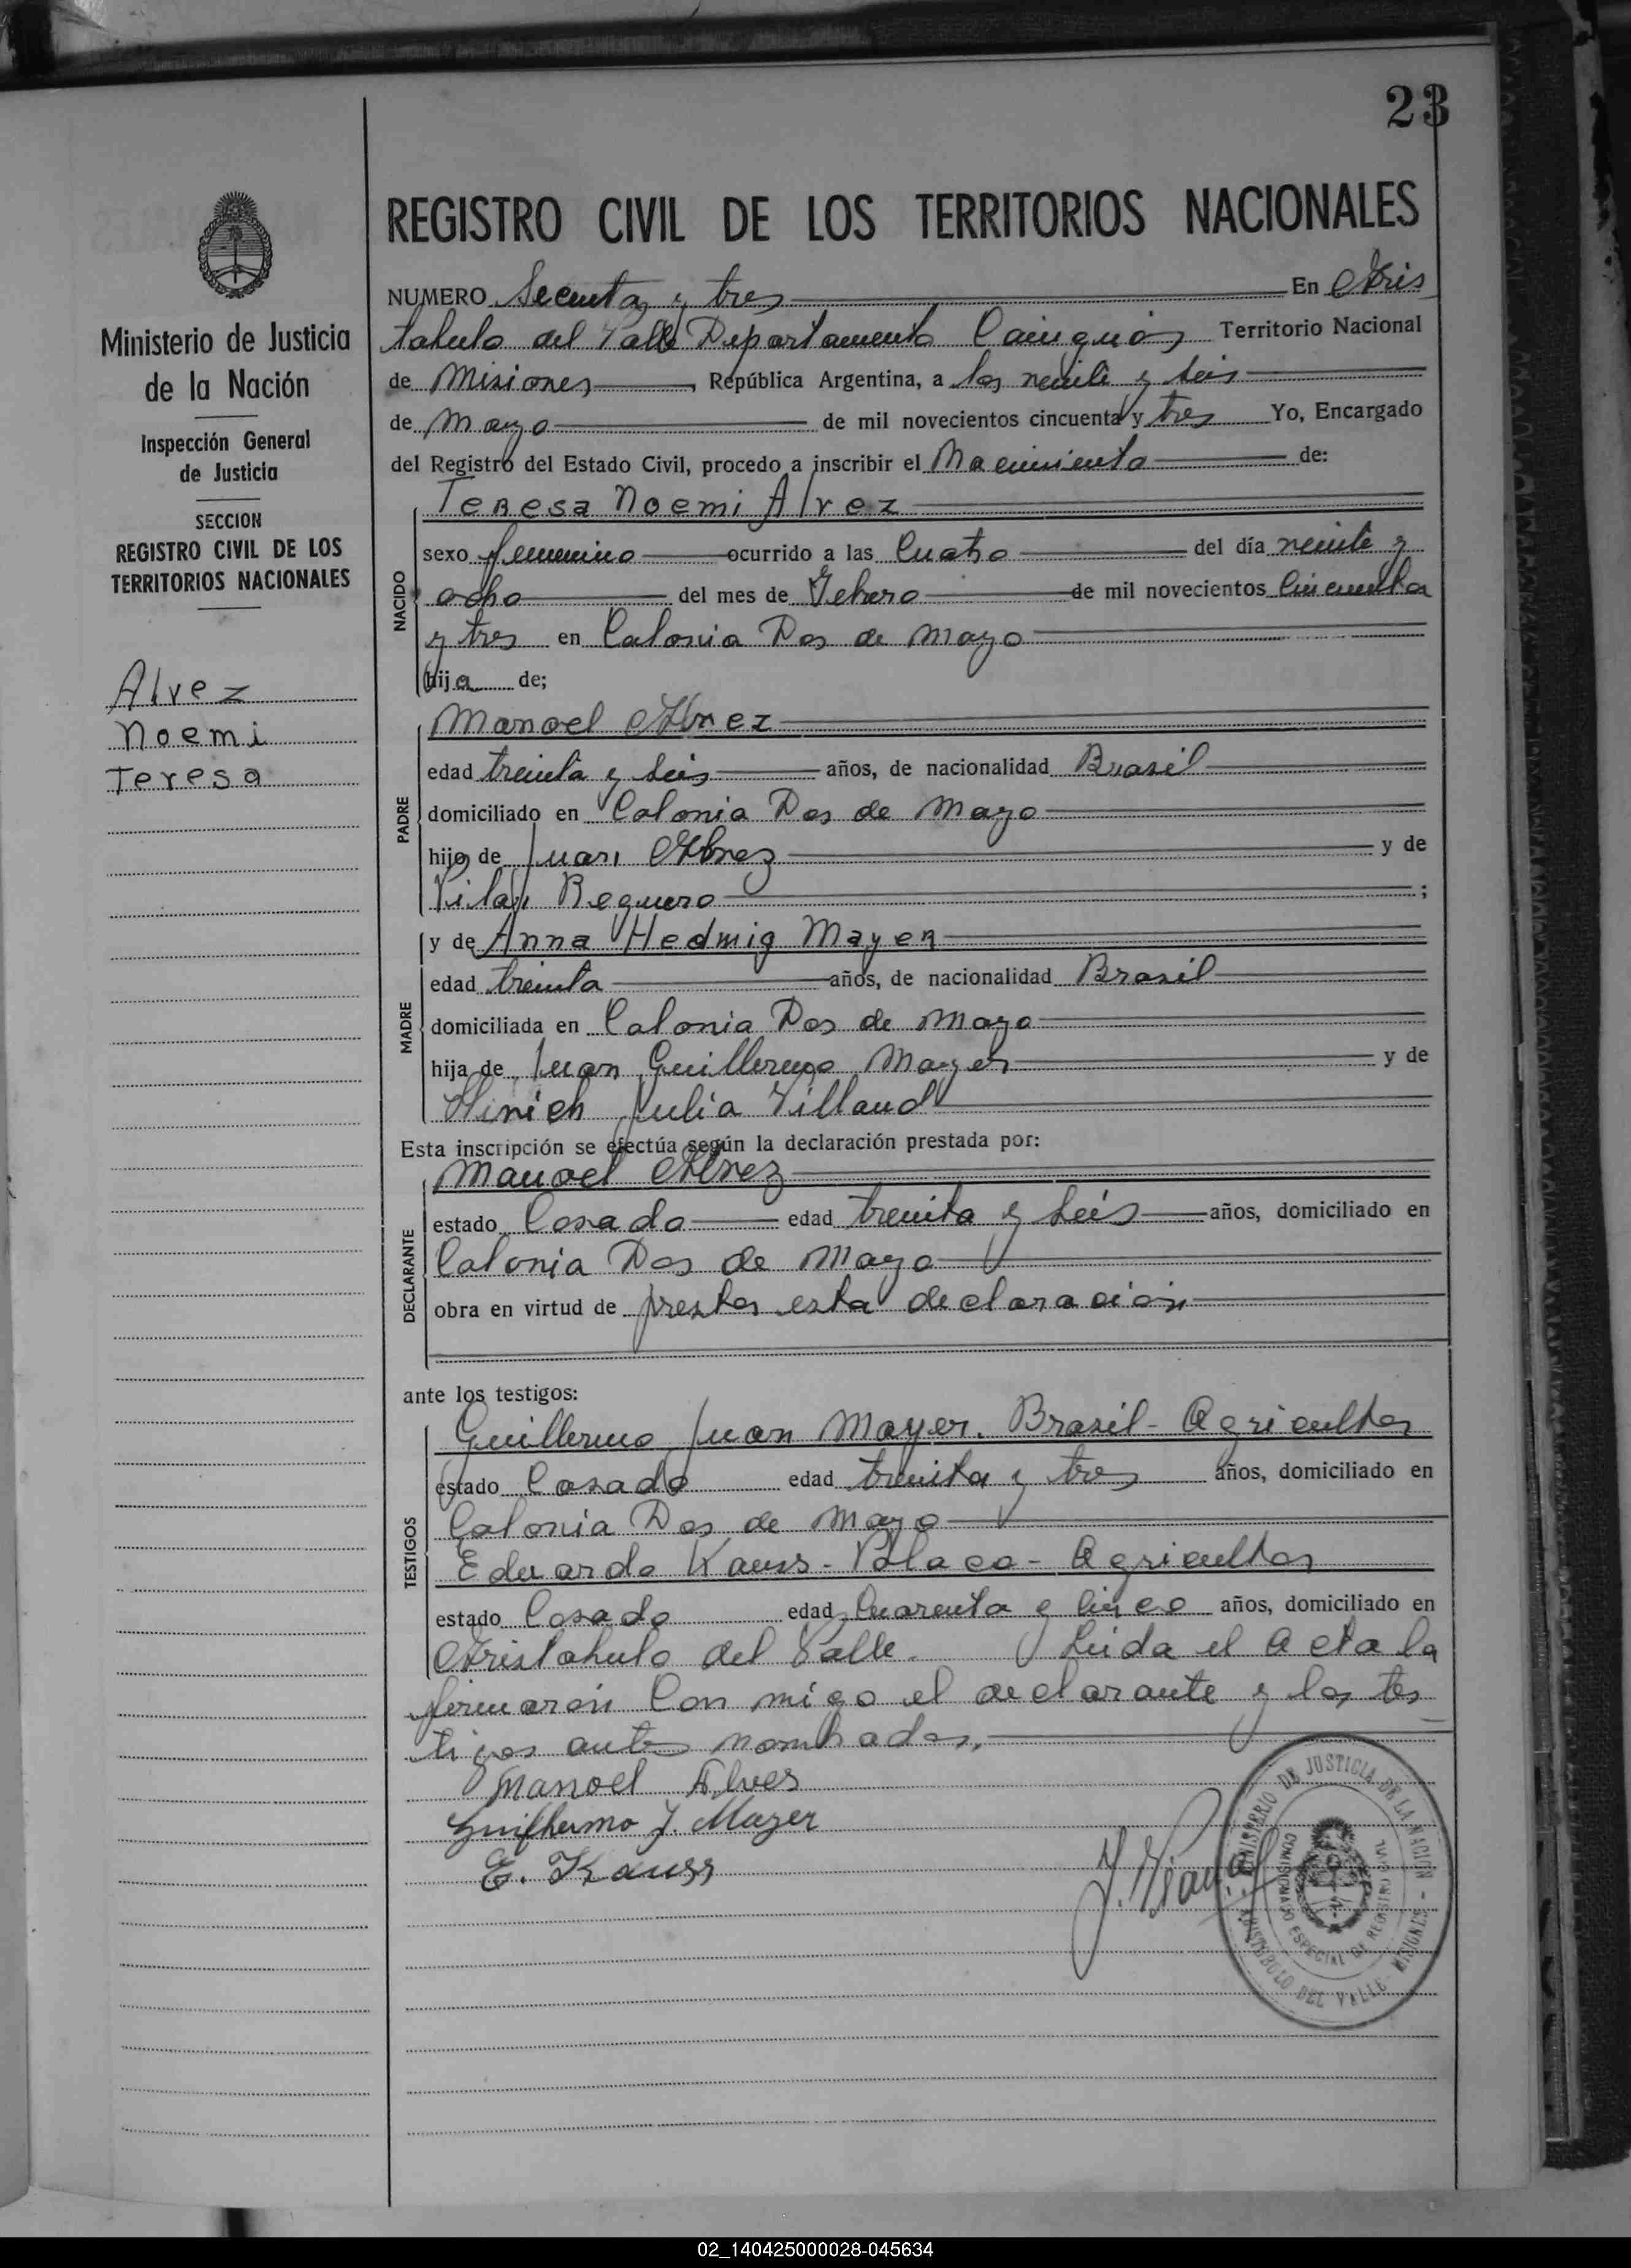 23
REGISTRO CIVIL DE LOS TERRITORIOS NACIONALES
Ministerio de Justicia
de la Nación
Inspección General
de Justicia
SECCION
REGISTRO CIVIL DE LOS
TERRITORIOS NACIONALES
Alvez
Noemi
Teresa
NUMERO Secenta y tres En Aris
tobulo del Valle Departamento Cainguás Territorio Nacional
de Misiones, República Argentina, a los veinte y seis
de Mayo de mil novecientos cincuenta y tres Yo, Encargado
del Registro del Estado Civil, procedo a inscribir el Nacimiento de:
NACIDO
Teresa Noemi Alvez
sexo femenino ocurrido a las Cuatro del día veinte y
ocho del mes de Febrero de mil novecientos Cincuenta
y tres en Colonia Dos de Mayo
hija de;
PADRE
Manoel Alvez
edad treinta y seis años, de nacionalidad Brasil
domiciliado en Colonia Dos de Mayo
hijo de Juan Alvez y de
Bequero ;
MADRE
y de Anna Hedwig Mayer
edad treinta años, de nacionalidad Brasil
domiciliada en Colonia Dos de Mayo
hija de Juan Guillermo Mayer y de
Julia
Esta inscripción se efectúa según la declaración prestada por:
DECLARANTE
Manoel Alvez
estado Casado edad treinta y seis años, domiciliado en
Colonia Dos de Mayo
obra en virtud de prestar esta declaración
ante los testigos:
TESTIGOS
Guillermo Juan Mayer. Brasil - Agricultor
estado Casado edad treinta y tres años, domiciliado en
Colonia Dos de Mayo
Eduardo Kauss - Polaco - Agricultor
estado Casado edad Cuarenta y cinco años, domiciliado en
Aristobulo del Valle. Leida el Acta la
firmarón Con migo el declarante y los tes
tigos antes nombrados.
Manoel Alves
Guilhermo J. Mayer
E. Kauss
MINISTERIO DE JUSTICIA DE LA NACIÓN - MISIONES -
ARISTOBULO DEL VALLE
COMISIONADO ESPECIAL DE REGISTRO CIVIL
02_140425000028-045634